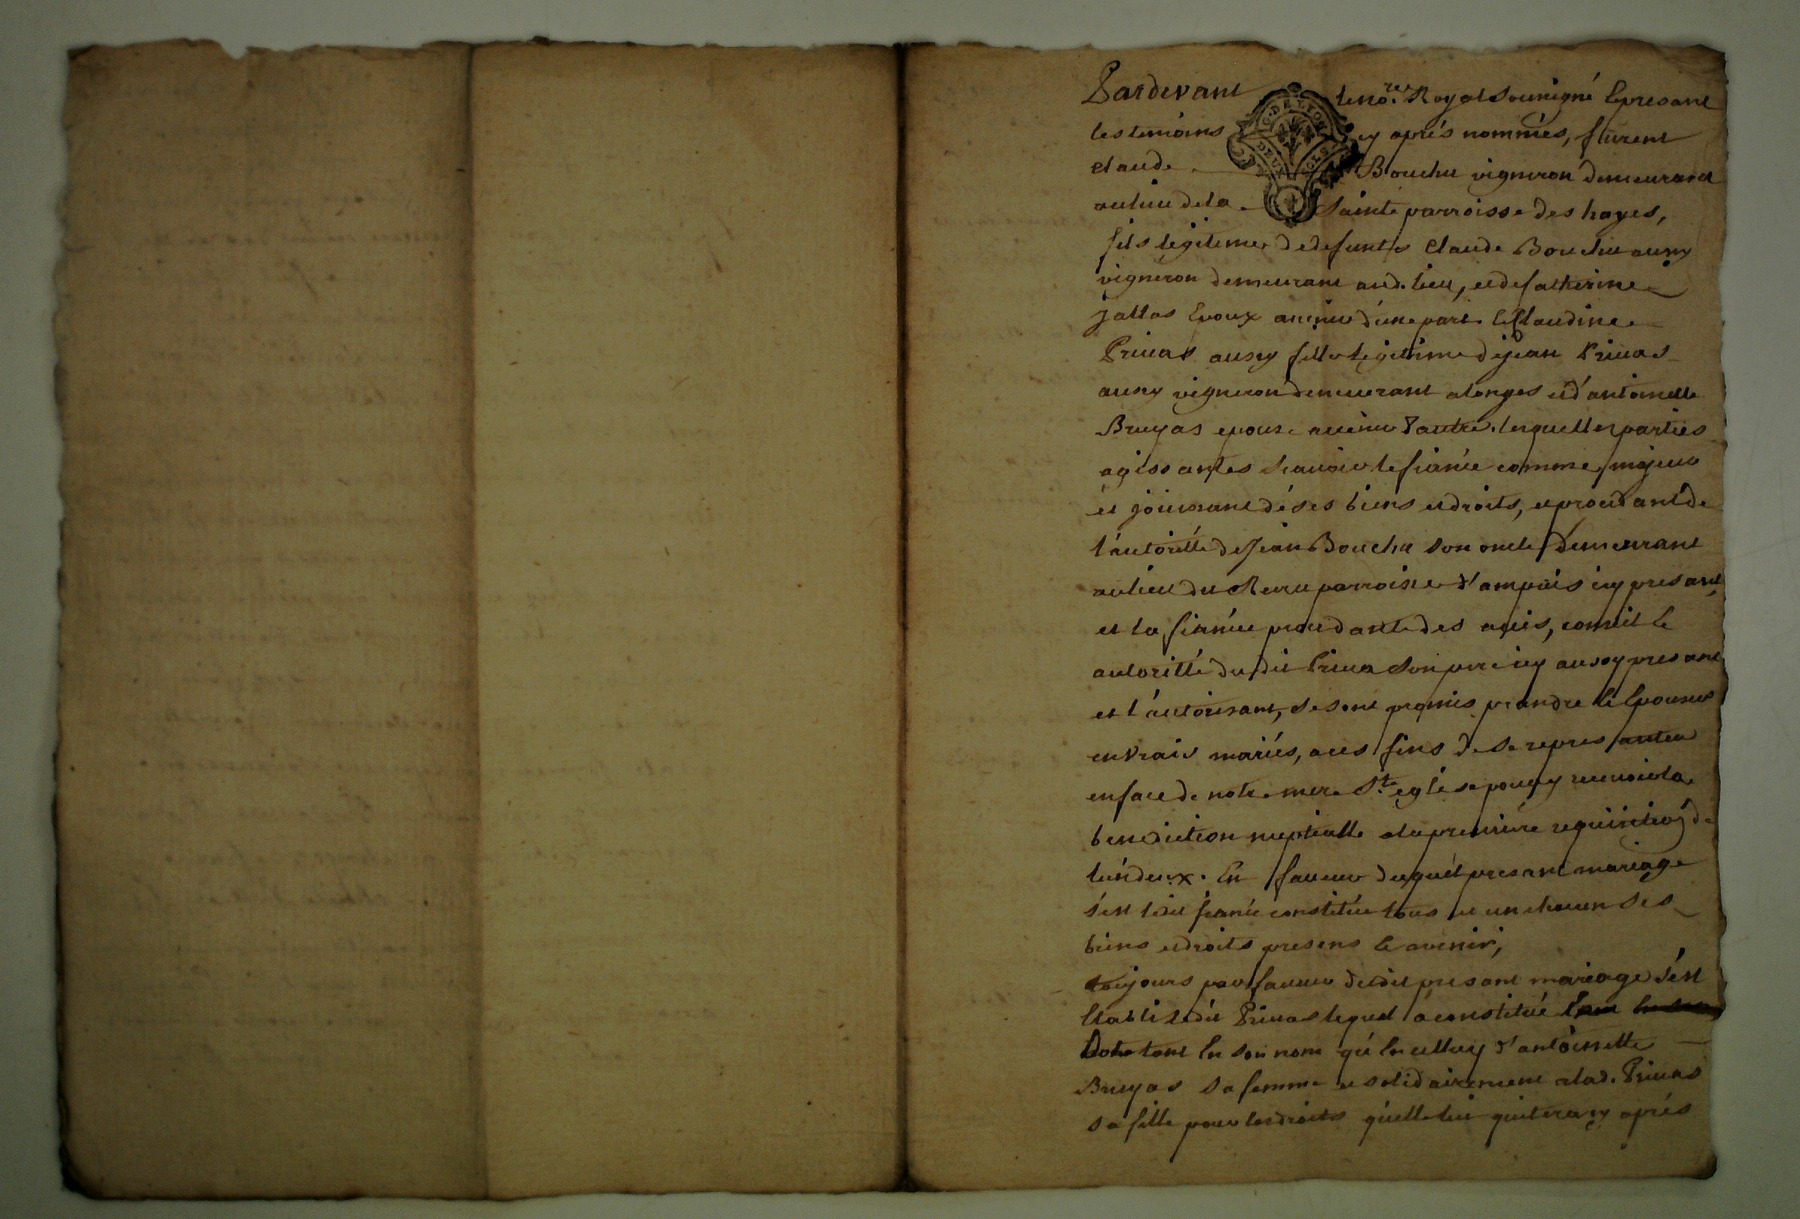 Pardevant le no.re Royal Sousigné Et presant
les temoins cy aprés nommés, furent
G. DE LYON
DEUX SOLS
claude Bouchu vigneron demeurant
au lieu de la Sainte parroisse des hayes,
fils legitime de defunts Claude Bouchu aussy
vigneron demeurant aud. lieu, et de Catherine
jallas Epoux avenir d'une part Et Claudine
Privas aussy fille legitime de jean Privas
aussy vigneron demeurant a longes et d'antoinette
Bruyas epouse avenir d'autre. lesquelles parties
agissantes scavoir le fiancé comme majeur
et jouissant de ses biens et droits, et procedant de
l'autorité de Jean Bouchu son oncle demeurant
au lieu du parroisse d'ampuis icy presant,
et la fiancée procedante des avis, conseil Et
autorité du dit Privas son pere icy aussy presant
et l'autorisant, se sont promis prandre Et Epouser
en vrais mariés, aux fins de se represanter
en face de notre mere S.te eglise pour y recevoir la
benediction nuptialle a la premiere requisition de
l'un deux. En faveur duquel presant mariage
s'est ledit fiancé constitué tous et un chacun ses
biens et droits presens Et avenir,
toujours par faveur dudit presant mariage s'est
Etabli ledit Privas lequel a constitué
Dote tant En son nom qu'En celluy d'antoinette
Bruyas sa femme et solidairement a lad. Privas
sa fille pour les droits qu'elle lui quitera cy aprés